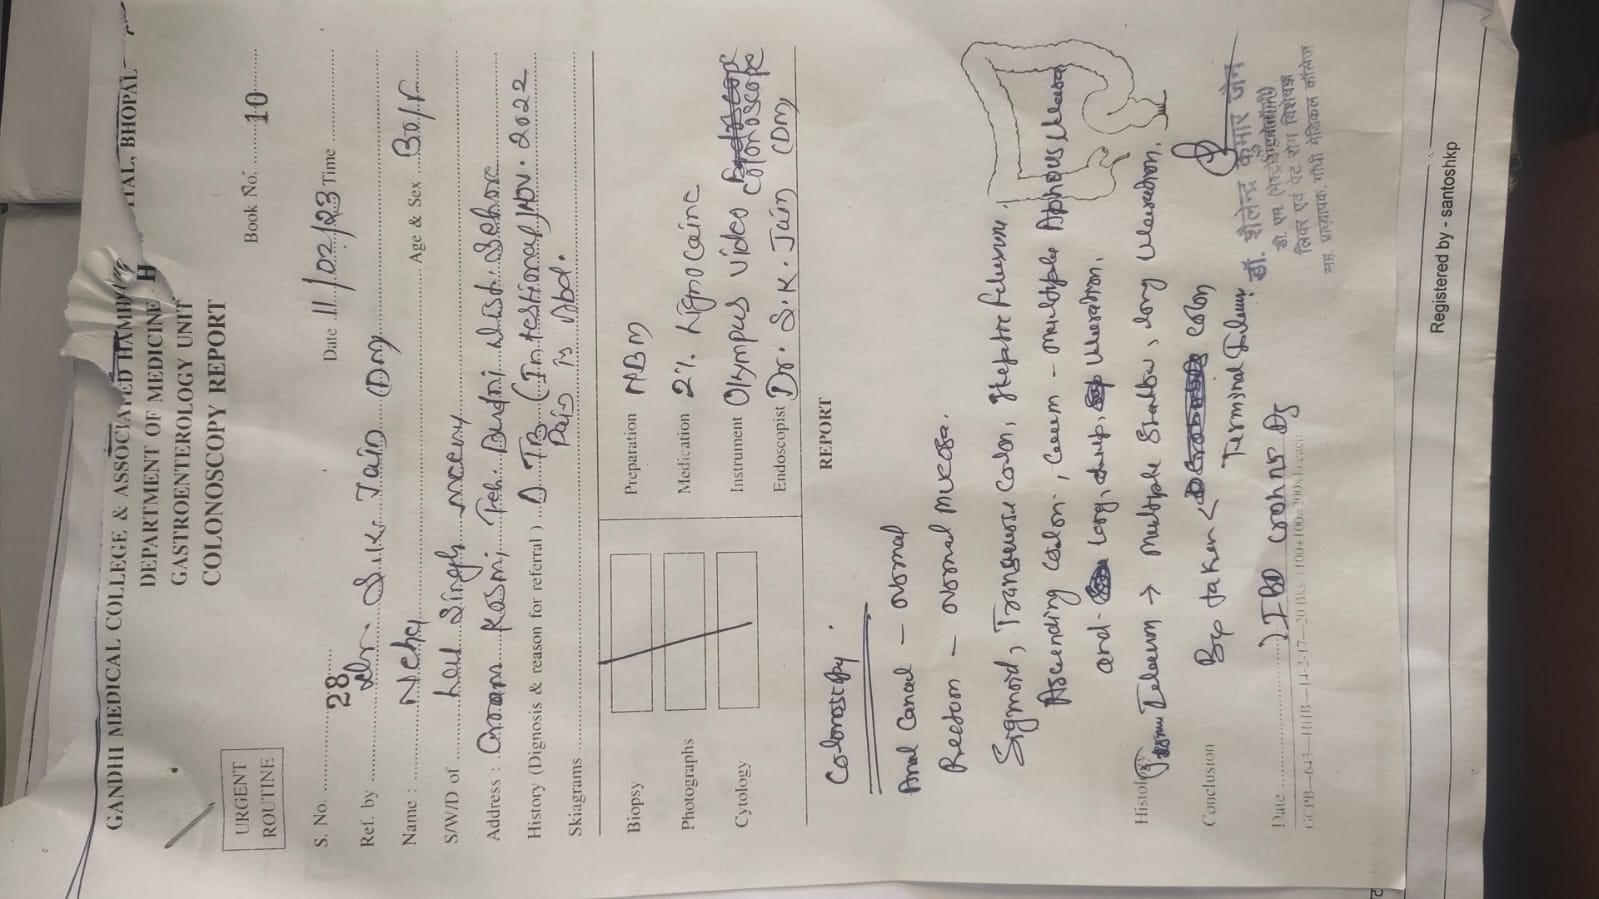 GANDHI MEDICAL COLLEGE & ASSOCIATED HAMIDIA HOSPITAL, BHOPAL
DEPARTMENT OF MEDICINE
GASTROENTEROLOGY UNIT
COLONOSCOPY REPORT
URGENT
ROUTINE
Book No. 10
S. No. 28 Date 11/02/23 Time
Ref. by Dr. S.K. Jain (DM)
Name : Neha Age & Sex 30/F
S/W/D of Singh
Address : Gram Kosmi Teh. Budni Dist. Sehore
History (Dignosis & reason for referral ) TB (Intestional) NOV. 2022
Pain in Abd.
Skiagrams
Biopsy
Photographs
Cytology
Preparation NBM
Medication 2% Lignocaine
Instrument Olympus video colonoscope
Endoscopist Dr. S.K. Jain (DM)
REPORT
Colonoscopy.
Anal Canal - normal
Rectum - normal mucosa.
Sigmoid, Transverse Colon, Hepatic flexure.
Ascending Colon, Cecum - multiple Aphthous ulcers
and long, deep ulceration.
Ileum → multiple long ulceration.
Histology
Bx taken < colon
Terminal Ileum
Conclusion
IBD
Date
GCPB—643—HHB—14-2-17—20 Bks (100+100=200x1) each
डॉ. शैलेन्द्र कुमार जैन
डी. एम. (गेस्ट्रोएन्ट्रोलॉजी)
लिवर एवं पेट रोग विशेषज्ञ
सह. प्राध्यापक, गाँधी मेडिकल कॉलेज
Registered by - santoshkp